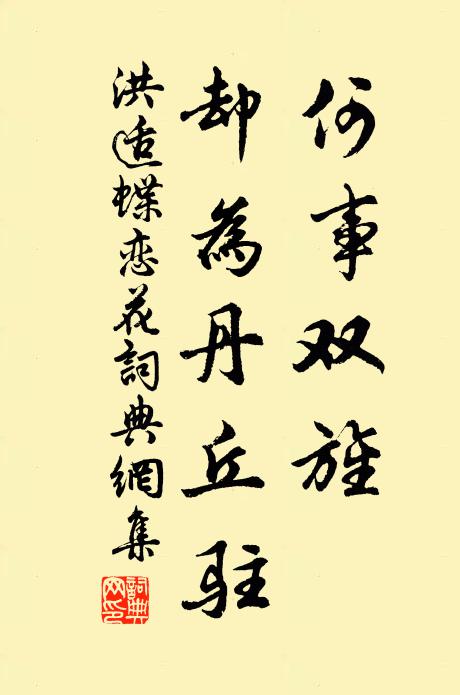 何事双旌
却为丹丘驻
洪适蝶恋花詞典網集
詞典網印